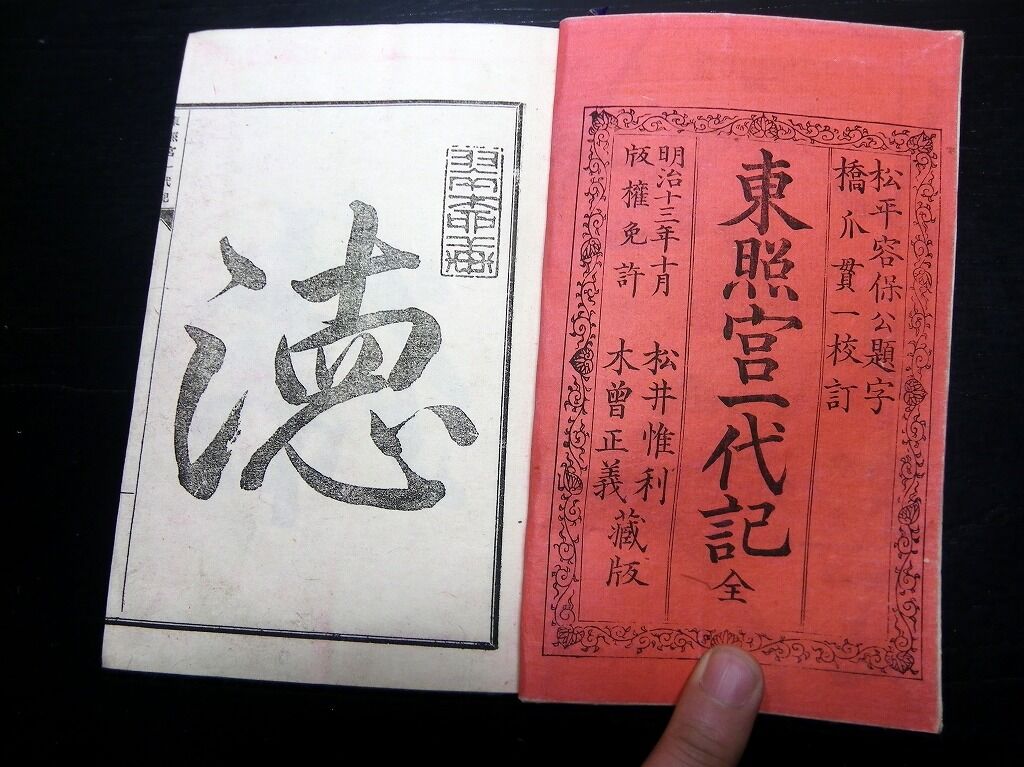 松平容保公題字
橋爪貫一校訂
東照宮一代記 全
明治十三年十月
版權免許
松井惟利
木曾正義
藏版
徳
東照宮一代記